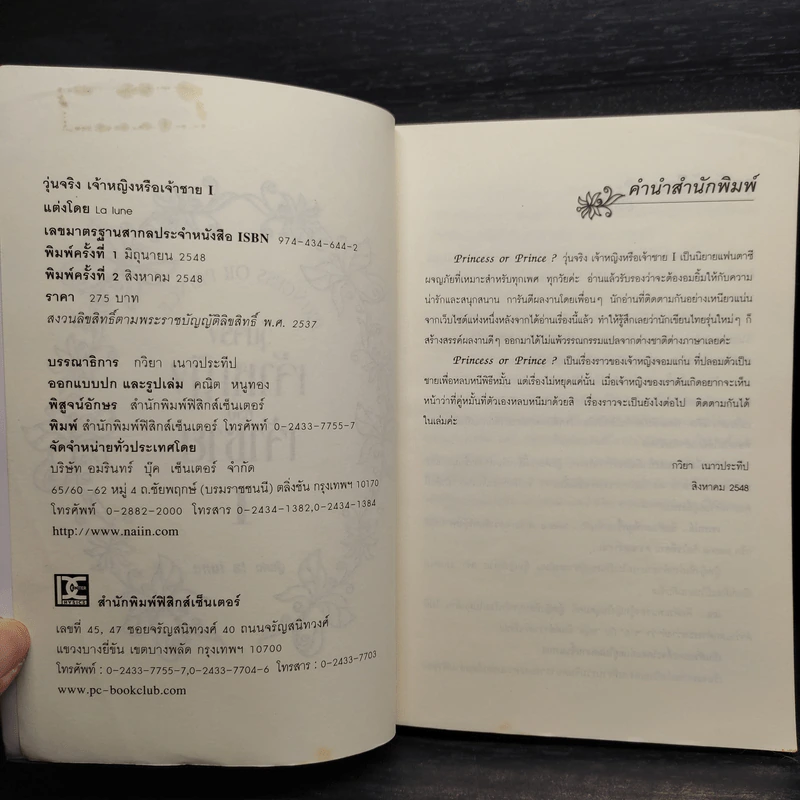 วุ่นจริง เจ้าหญิงหรือเจ้าชาย I
แต่งโดย La lune
เลขมาตรฐานสากลประจำหนังสือ ISBN 974-434-644-2
พิมพ์ครั้งที่ 1 มิถุนายน 2548
พิมพ์ครั้งที่ 2 สิงหาคม 2548
ราคา 275 บาท
สงวนลิขสิทธิ์ตามพระราชบัญญัติลิขสิทธิ์ พ.ศ. 2537
บรรณาธิการ กวิยา เนาวประทีป
ออกแบบปก และรูปเล่ม คณิต หนูทอง
พิสูจน์อักษร สำนักพิมพ์ฟิสิกส์เซ็นเตอร์
พิมพ์ สำนักพิมพ์ฟิสิกส์เซ็นเตอร์ โทรศัพท์ 0-2433-7755-7
จัดจำหน่ายทั่วประเทศโดย
บริษัท อมรินทร์ บุ๊ค เซ็นเตอร์ จำกัด
65/60 -62 หมู่ 4 ถ.ชัยพฤกษ์ (บรมราชชนนี) ตลิ่งชัน กรุงเทพฯ 10170
โทรศัพท์ 0-2882-2000 โทรสาร 0-2434-1382,0-2434-1384
http://www.naiin.com
สำนักพิมพ์ฟิสิกส์เซ็นเตอร์
เลขที่ 45, 47 ซอยจรัญสนิทวงศ์ 40 ถนนจรัญสนิทวงศ์
แขวงบางยี่ขัน เขตบางพลัด กรุงเทพฯ 10700
โทรศัพท์ : 0-2433-7755-7,0-2433-7704-6 โทรสาร : 0-2433-7703
www.pc-bookclub.com
คำนำสำนักพิมพ์
Princess or Prince ? วุ่นจริง เจ้าหญิงหรือเจ้าชาย I เป็นนิยายแฟนตาซี
ผจญภัยที่เหมาะสำหรับทุกเพศ ทุกวัยค่ะ อ่านแล้วรับรองว่าจะต้องอมยิ้มให้กับความ
น่ารักและสนุกสนาน การันตีผลงานโดยเพื่อนๆ นักอ่านที่ติดตามกันอย่างเหนียวแน่น
จากเว็บไซต์แห่งหนึ่งหลังจากได้อ่านเรื่องนี้แล้ว ทำให้รู้สึกเลยว่านักเขียนไทยรุ่นใหม่ๆ ก็
สร้างสรรค์ผลงานดีๆ ออกมาได้ไม่แพ้วรรณกรรมแปลจากต่างชาติต่างภาษาเลยค่ะ
Princess or Prince ? เป็นเรื่องราวของเจ้าหญิงจอมแก่น ที่ปลอมตัวเป็น
ชายเพื่อหลบหนีพิธีหมั้น แต่เรื่องไม่หยุดแค่นั้น เมื่อเจ้าหญิงของเราดันเกิดอยากจะเห็น
หน้าว่าที่คู่หมั้นที่ตัวเองหลบหนีมาด้วยสิ เรื่องราวจะเป็นยังไงต่อไป ติดตามกันได้
ในเล่มค่ะ
กวิยา เนาวประทีป
สิงหาคม 2548